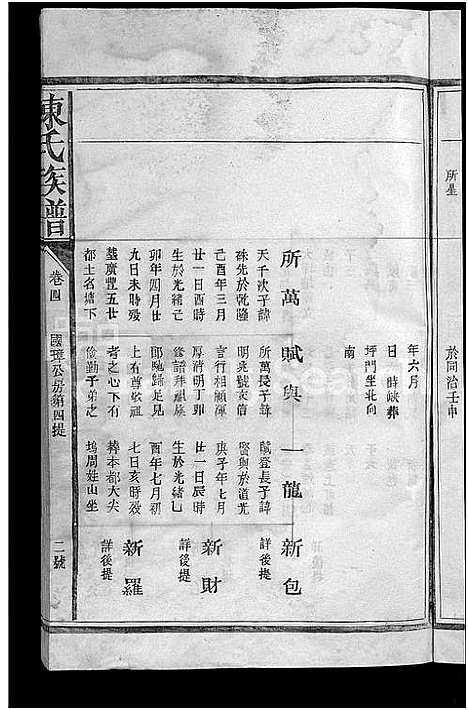 所星
於同治壬申
年六月
日 時歿葬
坪門坐北向
南
所萬 賦與 一龍 新包
天千次子諱 所萬長子諱 賦登長子諱 詳後提
於乾隆 明 號文 與於道光
己酉年三月 言行相顧渾 庚子年七月 新財
廿一日酉時 厚清明丁卯 廿一日辰時
生於光緒己 修譜拜祖族 生於光緒乙 詳後提
卯年四月廿 歸足見 酉年七月初
九日未時歿 上有尊敬祖 七日亥時歿 新羅
墓廣豐五廿 者之心下有 葬本都大尖
都土名塘下 儉勤子弟之 塢周姓山坐 詳後提
陳氏族譜
卷四
國璋公房第四提
二號